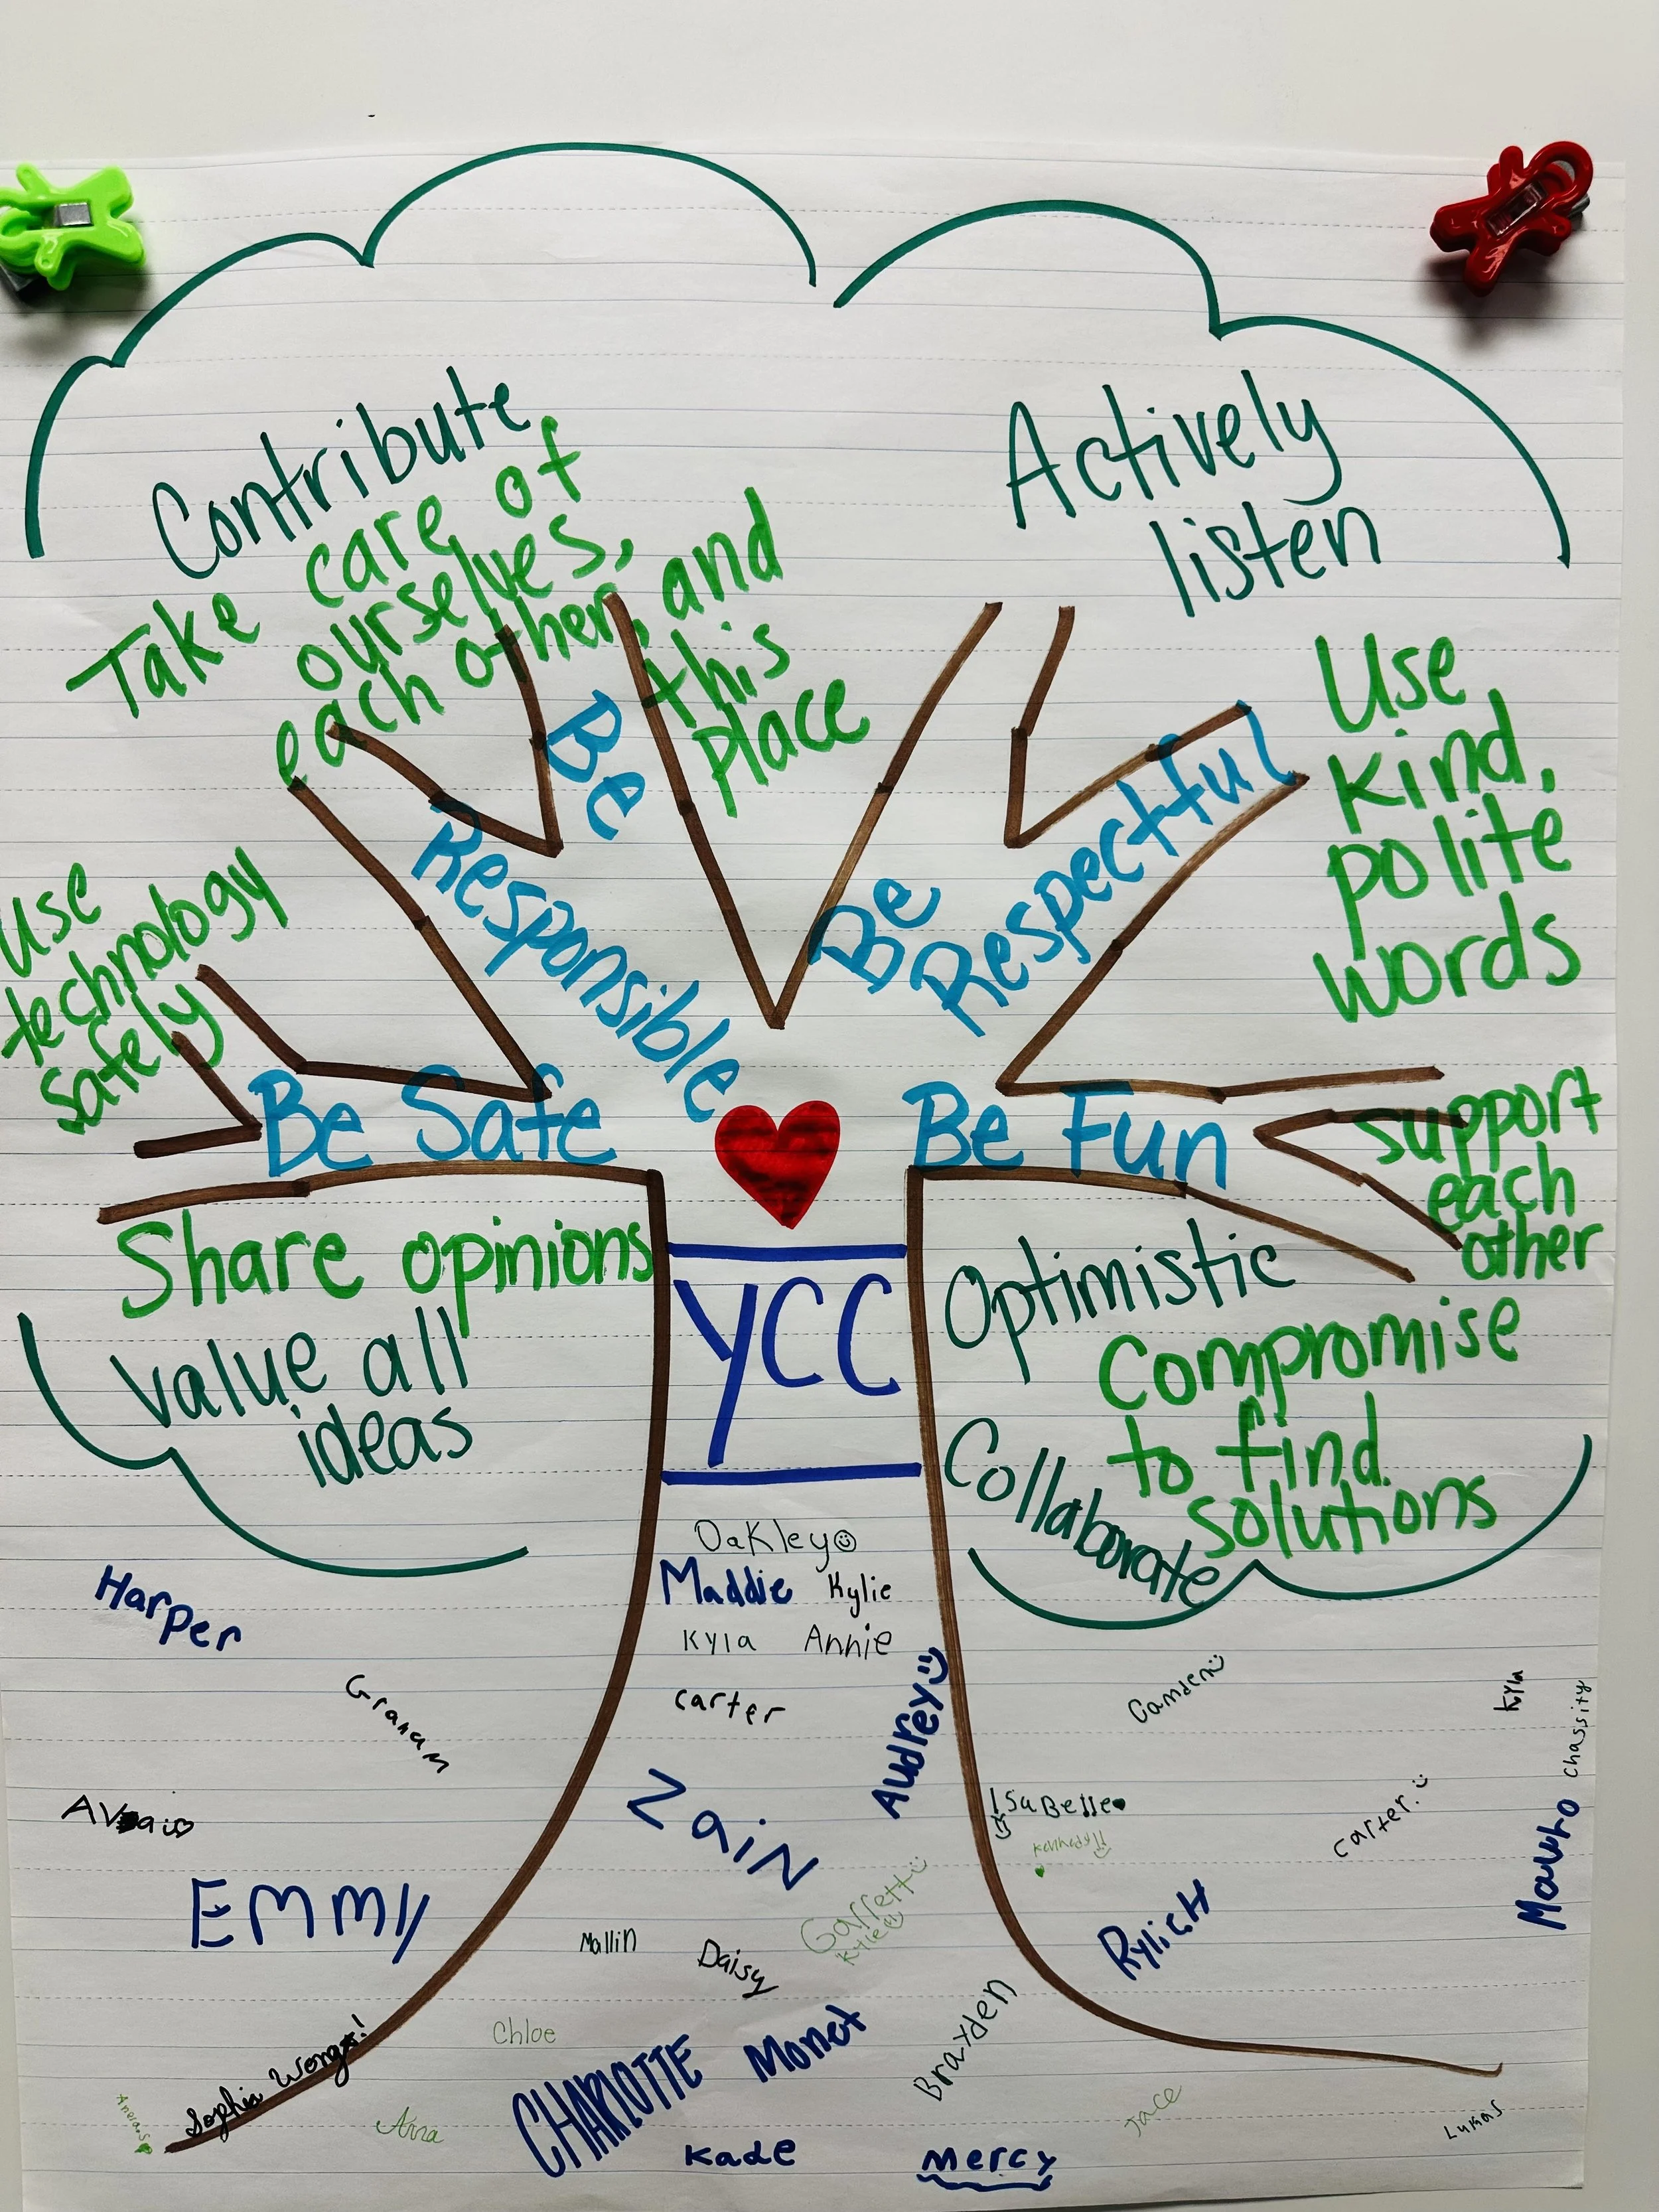 Contribute
Take care of
ourselves,
each other, and
this
place
Actively
listen
Use
kind,
polite
words
Be
Responsible
Be
Respectful
Use
technology
safely
Be Safe
Be Fun
support
each
other
Share opinions
value all
ideas
YCC
Optimistic
Compromise
to find
solutions
Collaborate
Oakley
Maddie Kylie
Kyla Annie
carter
Audrey
Harper
Graham
Emmy
Zain
Garrett
Kyle
Mallin
Daisy
Chloe
CHARLOTTE Monet
Kade
Mercy
Braxden
Jace
Lukas
Camden
Kyla
Chassity
IsaBelle
Kennedy
carter.
Mauro
Rylich
Sophia
Anna